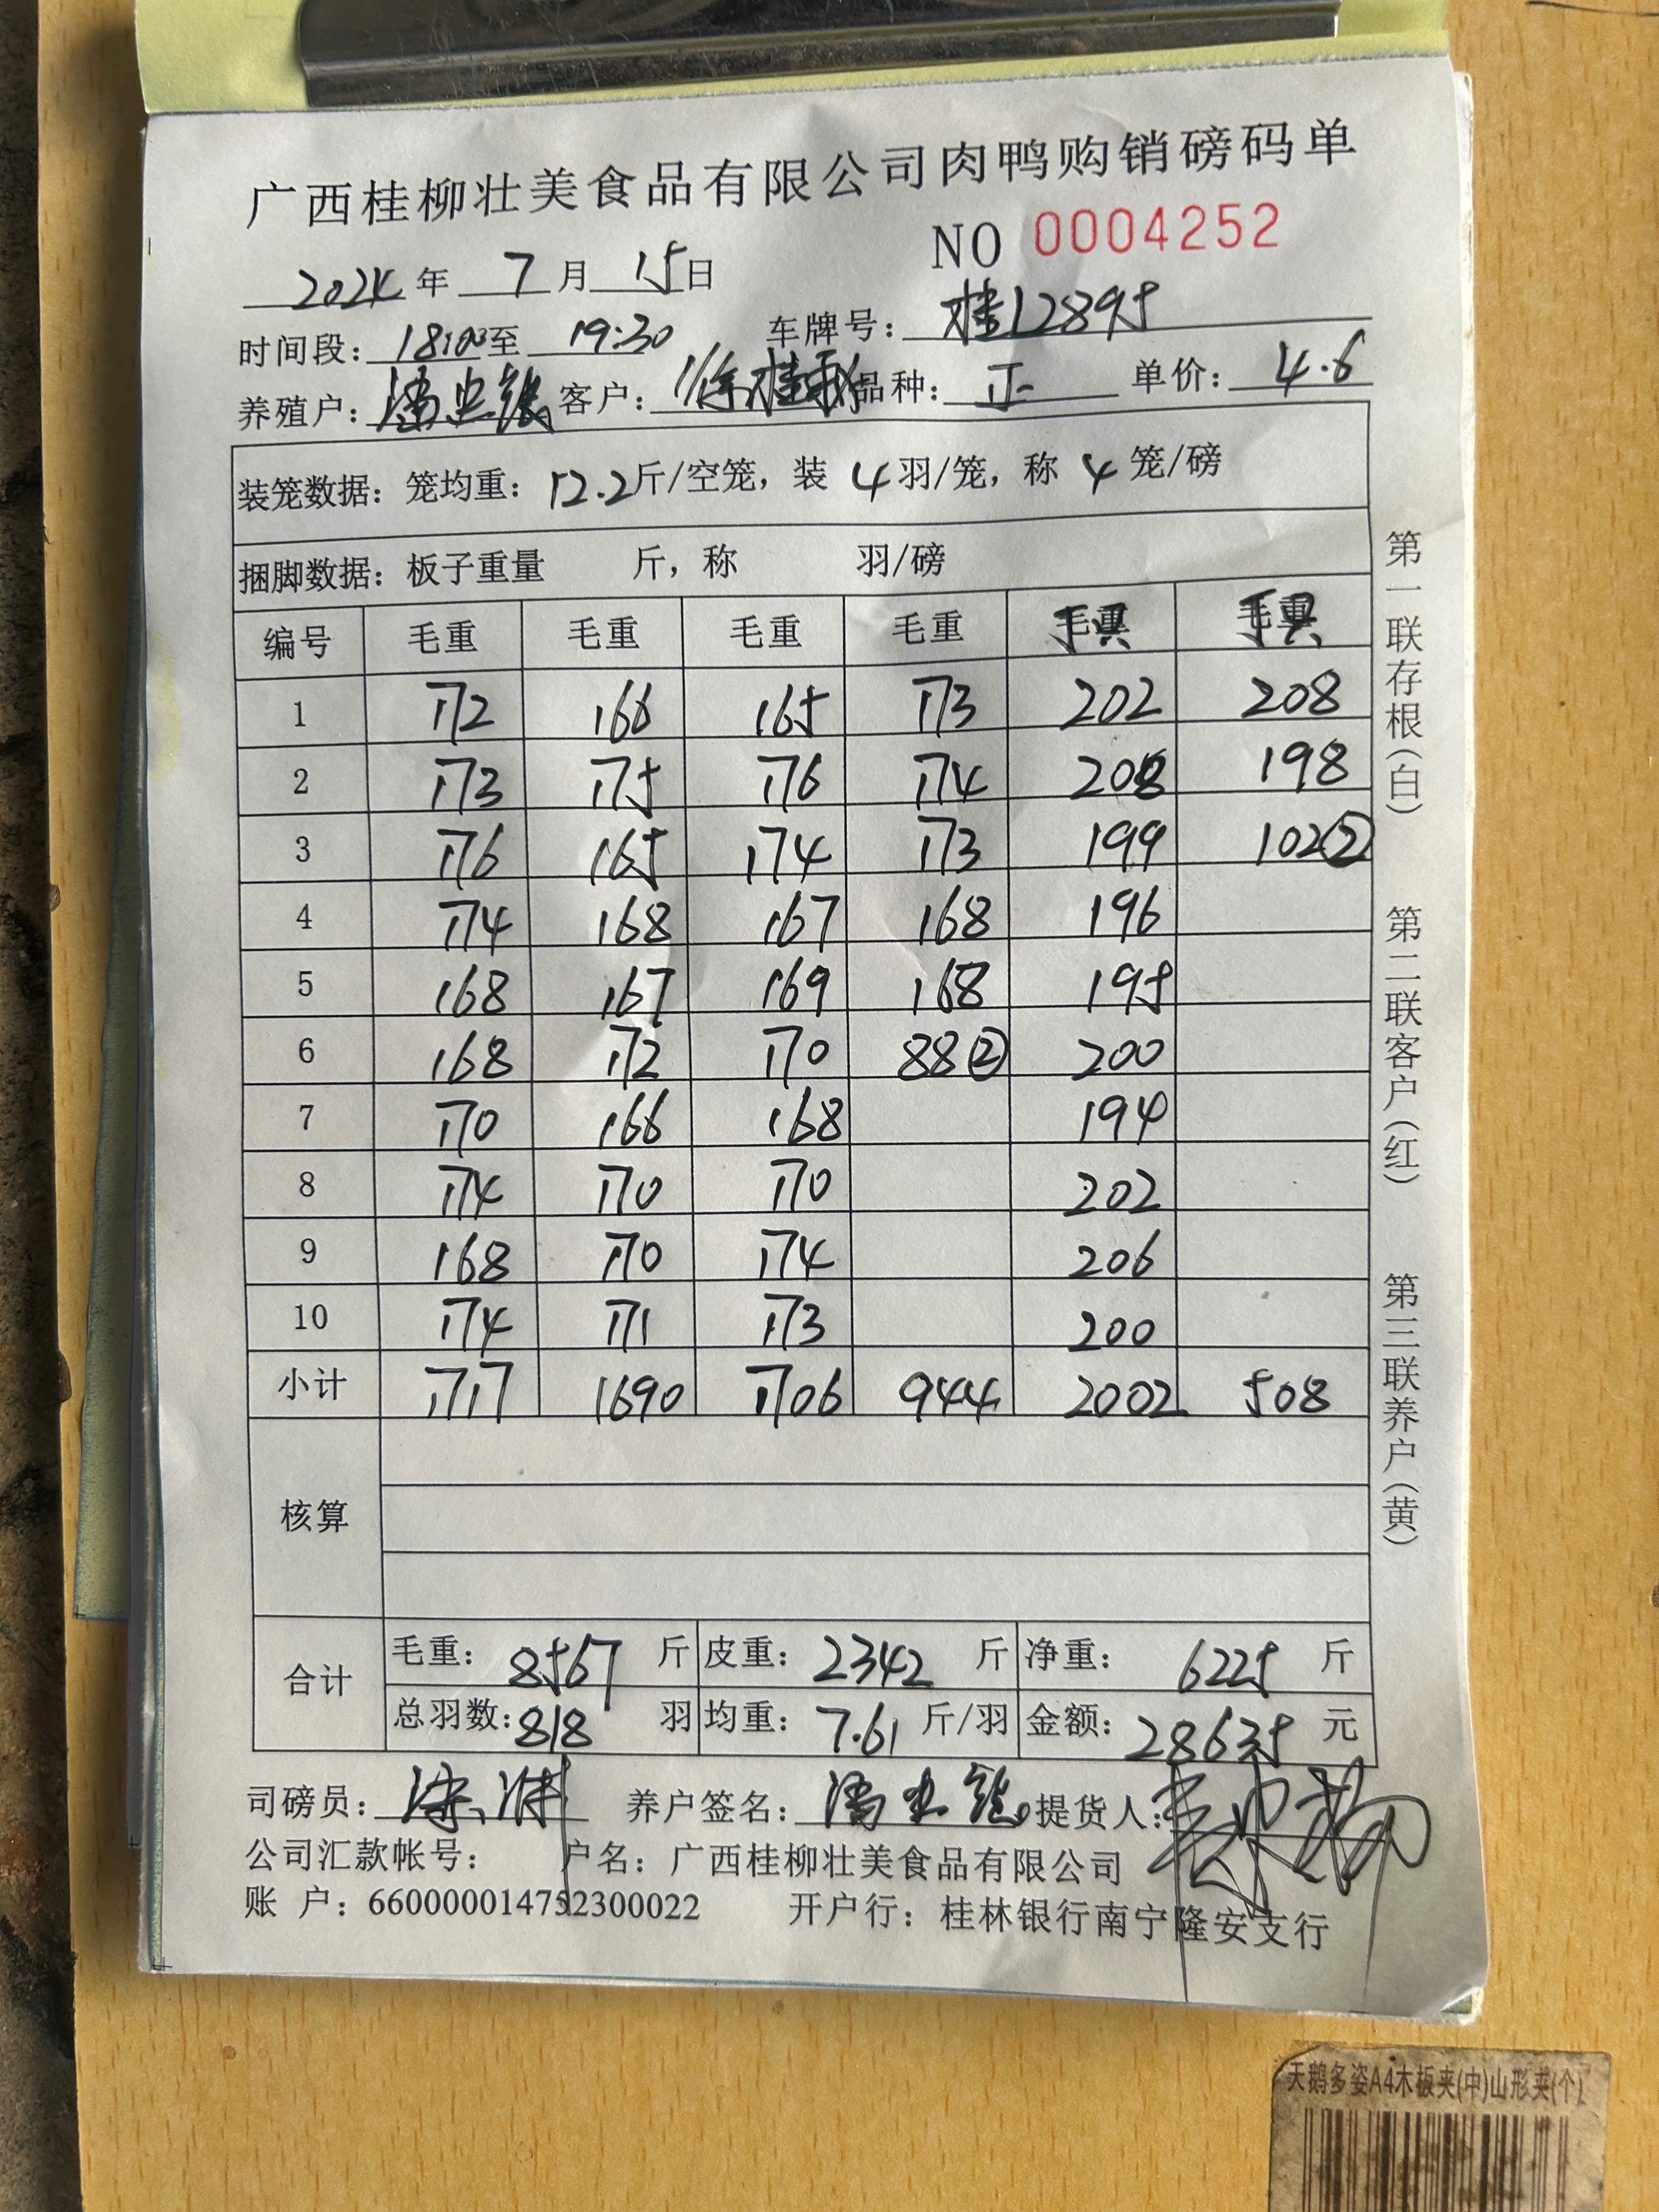 广西桂柳壮美食品有限公司肉鸭购销磅码单
NO 0004252
2024年 7月 15日
时间段：18:00至 19:30 车牌号：桂12895
养殖户：潘 客户：徐桂 品种： 单价：4.6
装笼数据：笼均重：12.2斤/空笼，装 4 羽/笼，称 4 笼/磅
捆脚数据：板子重量 斤，称 羽/磅
编号 毛重 毛重 毛重 毛重 毛重 毛重
1 172 166 165 173 202 208
2 173 175 176 174 208 198
3 176 165 174 173 199 102②
4 174 168 167 168 196
5 168 167 169 168 195
6 168 172 170 88② 200
7 170 166 168 194
8 174 170 170 202
9 168 170 174 206
10 174 171 173 200
小计 1717 1690 1706 944 2002 508
核算
合计 毛重：8567 斤 皮重：2342 斤 净重：6225 斤
总羽数：818 羽 均重：7.61 斤/羽 金额：28635 元
司磅员： 养户签名：潘 提货人：
公司汇款帐号： 户名：广西桂柳壮美食品有限公司
账 户：660000014752300022 开户行：桂林银行南宁隆安支行
第一联存根（白） 第二联客户（红） 第三联养户（黄）
天鹅多姿A4木板夹(中)山形夹(个)